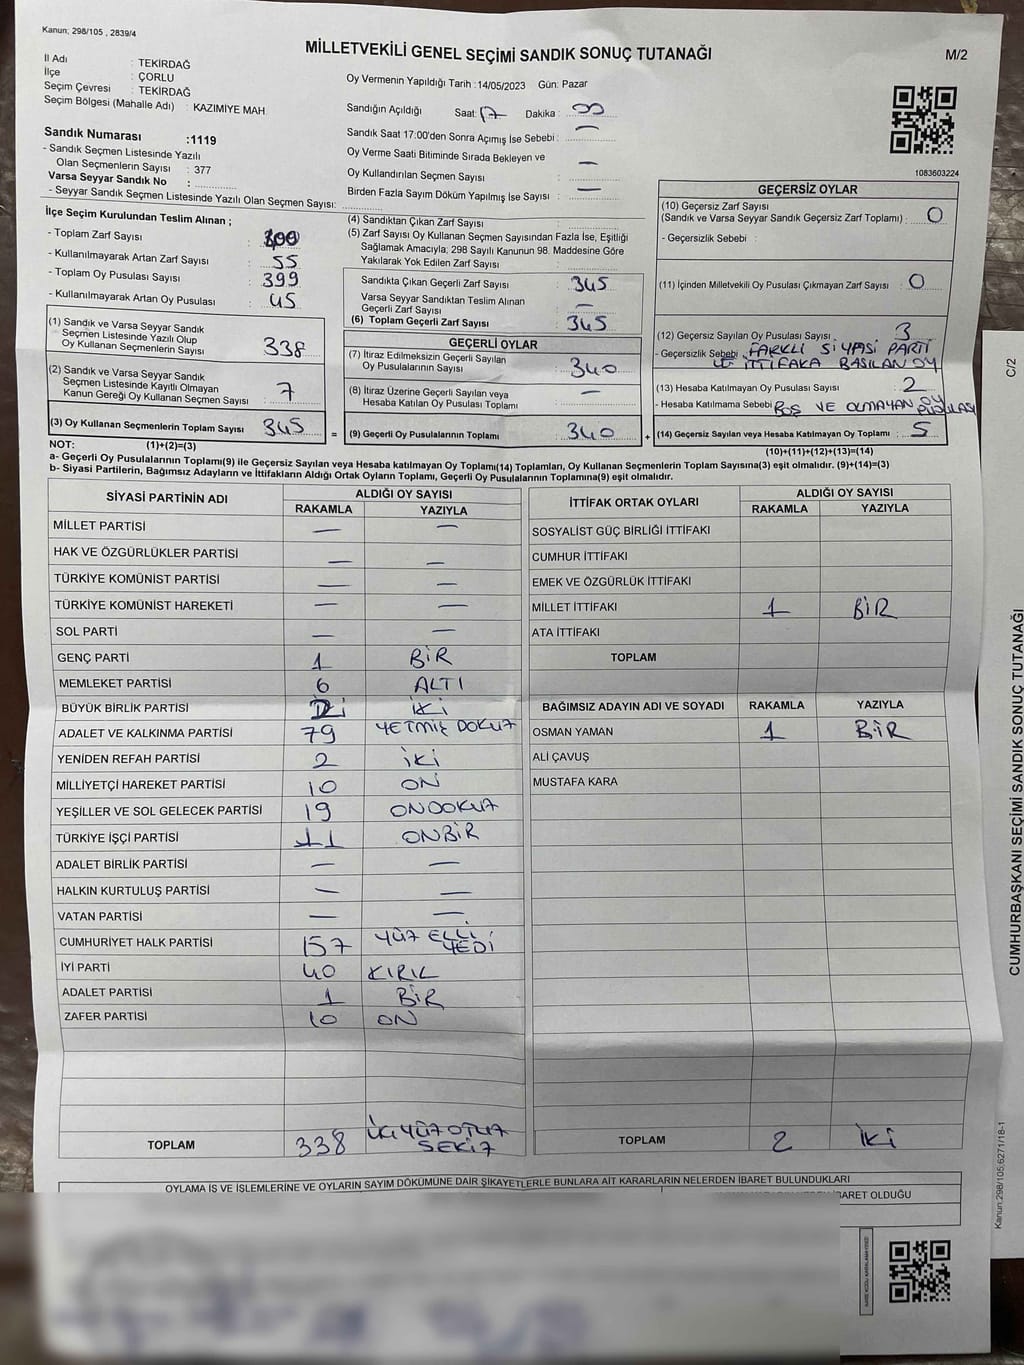 Kanun; 298/105 , 2839/4
MİLLETVEKİLİ GENEL SEÇİMİ SANDIK SONUÇ TUTANAĞI
M/2
İl Adı : TEKİRDAĞ
İlçe : ÇORLU
Seçim Çevresi : TEKİRDAĞ
Seçim Bölgesi (Mahalle Adı) : KAZIMİYE MAH
Sandık Numarası :1119
- Sandık Seçmen Listesinde Yazılı
Olan Seçmenlerin Sayısı : 377
Varsa Seyyar Sandık No :
- Seyyar Sandık Seçmen Listesinde Yazılı Olan Seçmen Sayısı:
Oy Vermenin Yapıldığı Tarih :14/05/2023 Gün: Pazar
Sandığın Açıldığı Saat: 17 Dakika : 00
Sandık Saat 17:00'den Sonra Açımış İse Sebebi : —
Oy Verme Saati Bitiminde Sırada Bekleyen ve
Oy Kullandırılan Seçmen Sayısı : —
Birden Fazla Sayım Döküm Yapılmış İse Sayısı : —
1083603224
İlçe Seçim Kurulundan Teslim Alınan ;
- Toplam Zarf Sayısı :
- Kullanılmayarak Artan Zarf Sayısı : 55
- Toplam Oy Pusulası Sayısı : 399
- Kullanılmayarak Artan Oy Pusulası : 45
(1) Sandık ve Varsa Seyyar Sandık
Seçmen Listesinde Yazılı Olup
Oy Kullanan Seçmenlerin Sayısı 338
(2) Sandık ve Varsa Seyyar Sandık
Seçmen Listesinde Kayıtlı Olmayan
Kanun Gereği Oy Kullanan Seçmen Sayısı 7
(3) Oy Kullanan Seçmenlerin Toplam Sayısı 345 =
(4) Sandıktan Çıkan Zarf Sayısı :
(5) Zarf Sayısı Oy Kullanan Seçmen Sayısından Fazla İse, Eşitliği
Sağlamak Amacıyla; 298 Sayılı Kanunun 98. Maddesine Göre
Yakılarak Yok Edilen Zarf Sayısı :
Sandıkta Çıkan Geçerli Zarf Sayısı : 345
Varsa Seyyar Sandıktan Teslim Alınan
Geçerli Zarf Sayısı : —
(6) Toplam Geçerli Zarf Sayısı : 345
GEÇERLİ OYLAR
(7) İtiraz Edilmeksizin Geçerli Sayılan
Oy Pusulalarının Sayısı : 340
(8) İtiraz Üzerine Geçerli Sayılan veya
Hesaba Katılan Oy Pusulası Toplamı : —
(9) Geçerli Oy Pusulalarının Toplamı : 340 +
GEÇERSİZ OYLAR
(10) Geçersiz Zarf Sayısı
(Sandık ve Varsa Seyyar Sandık Geçersiz Zarf Toplamı) : 0
- Geçersizlik Sebebi :
(11) İçinden Milletvekili Oy Pusulası Çıkmayan Zarf Sayısı : 0
(12) Geçersiz Sayılan Oy Pusulası Sayısı : 3
- Geçersizlik Sebebi : FARKLI SİYASİ PARTİ
İTTİFAKA BASILAN OY
(13) Hesaba Katılmayan Oy Pusulası Sayısı : 2
- Hesaba Katılmama Sebebi : BOŞ VE OLMAYAN OY
PUSULASI
(14) Geçersiz Sayılan veya Hesaba Katılmayan Oy Toplamı : 5
NOT: (1)+(2)=(3)
(10)+(11)+(12)+(13)=(14)
a- Geçerli Oy Pusulalarının Toplamı(9) ile Geçersiz Sayılan veya Hesaba katılmayan Oy Toplamı(14) Toplamları, Oy Kullanan Seçmenlerin Toplam Sayısına(3) eşit olmalıdır. (9)+(14)=(3)
b- Siyasi Partilerin, Bağımsız Adayların ve İttifakların Aldığı Ortak Oyların Toplamı, Geçerli Oy Pusulalarının Toplamına(9) eşit olmalıdır.
SİYASİ PARTİNİN ADI ALDIĞI OY SAYISI
RAKAMLA YAZIYLA
MİLLET PARTİSİ — —
HAK VE ÖZGÜRLÜKLER PARTİSİ — —
TÜRKİYE KOMÜNİST PARTİSİ — —
TÜRKİYE KOMÜNİST HAREKETİ — —
SOL PARTİ — —
GENÇ PARTİ 1 BİR
MEMLEKET PARTİSİ 6 ALTI
BÜYÜK BİRLİK PARTİSİ İKİ
ADALET VE KALKINMA PARTİSİ 79 YETMİŞ DOKUZ
YENİDEN REFAH PARTİSİ 2 İKİ
MİLLİYETÇİ HAREKET PARTİSİ 10 ON
YEŞİLLER VE SOL GELECEK PARTİSİ 19 ONDOKUZ
TÜRKİYE İŞÇİ PARTİSİ 11 ONBİR
ADALET BİRLİK PARTİSİ — —
HALKIN KURTULUŞ PARTİSİ — —
VATAN PARTİSİ — —
CUMHURİYET HALK PARTİSİ 157 YÜZ ELLİ YEDİ
İYİ PARTİ 40 KIRK
ADALET PARTİSİ 1 BİR
ZAFER PARTİSİ 10 ON
TOPLAM 338 ÜÇ YÜZ OTUZ SEKİZ
İTTİFAK ORTAK OYLARI ALDIĞI OY SAYISI
RAKAMLA YAZIYLA
SOSYALİST GÜÇ BİRLİĞİ İTTİFAKI
CUMHUR İTTİFAKI
EMEK VE ÖZGÜRLÜK İTTİFAKI
MİLLET İTTİFAKI 1 BİR
ATA İTTİFAKI
TOPLAM
BAĞIMSIZ ADAYIN ADI VE SOYADI RAKAMLA YAZIYLA
OSMAN YAMAN 1 BİR
ALİ ÇAVUŞ
MUSTAFA KARA
TOPLAM 2 İKİ
OYLAMA İŞ VE İŞLEMLERİNE VE OYLARIN SAYIM DÖKÜMÜNE DAİR ŞİKAYETLERLE BUNLARA AİT KARARLARIN NELERDEN İBARET BULUNDUKLARI
İBARET OLDUĞU
C/2
CUMHURBAŞKANI SEÇİMİ SANDIK SONUÇ TUTANAĞI
Kanun;298/105;6271/18-1